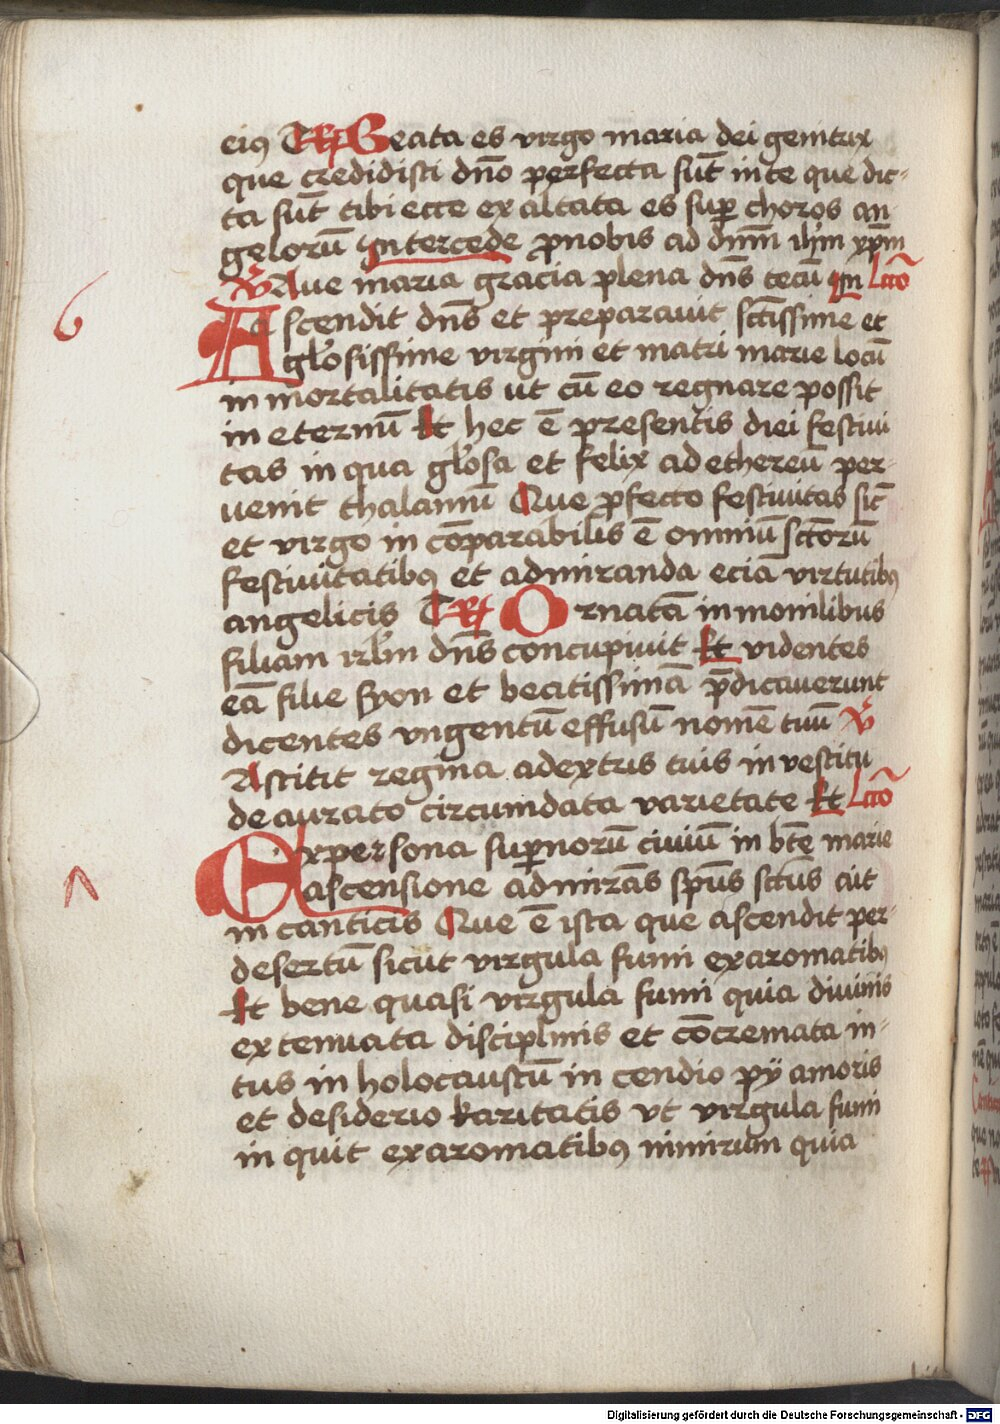 eiꝰ T R Beata es virgo maria dei genitrix
que credidisti dn̄o perfecta sūt in te que dic-
ta sūt tibi ecce exaltata es suꝑ choros an
gelorū Intercede ꝓ nobis ad dn̄m ih̄m xp̄m
V Aue maria gracia plena dn̄s tecū In Lc̄o
6
Ascendit dn̄s et preparauit sc̄tissime et
gl̄osissime virgini et matri marie locū
in mortalitatis ut cū eo regnare possit
in eternū Et hec ē presentis diei festiui
tas in qua gl̄osa et felix ad ethereū per-
uenit thalamū Que ꝓfecto festiuitas sic̄
et virgo in cōparabilis ē omniū sc̄torū
festiuitatibꝰ et admiranda eciā virtutibꝰ
angelicis T R Ornatā in monilibus
filiam irl̄m dn̄s concupiuit Et videntes
eā filie syon et beatissimā p̄dicauerunt
dicentes vngentū effusū nomē tuū V
Astitit regina a dextris tuis in vestitu
de aurato circumdata varietate Et Lc̄o
Ex persona suꝑnorū ciuiū in bt̄e marie
ascensione admirās sp̄us sc̄tus ait
in canticis Que ē ista que ascendit per-
desertū sicut virgula fumi ex aromatibꝰ
Et bene quasi virgula fumi quia diuinis
extenuata disciplinis et cōcremata in-
tus in holocaustū in cendio pÿ amoris
et desiderio karitatis vt virgula fumi
in quit ex aromatibꝰ nimirum quia
Digitalisierung gefördert durch die Deutsche Forschungsgemeinschaft - DFG